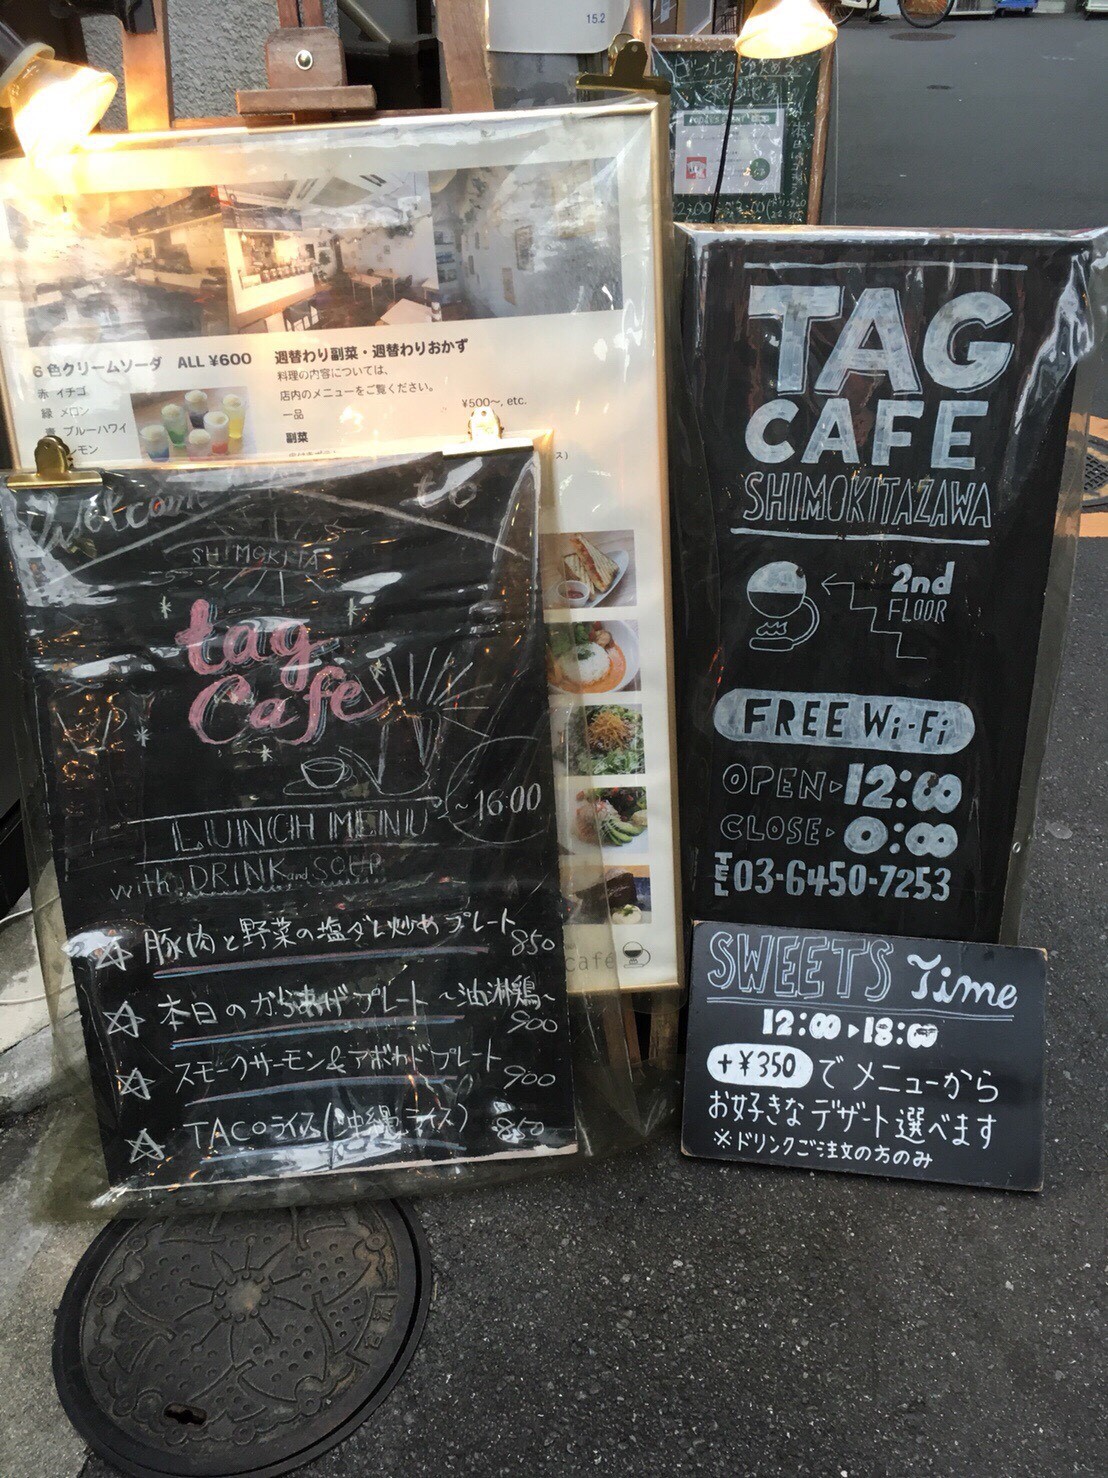 15.2
6色クリームソーダ ALL ¥600
赤 イチゴ
緑 メロン
青 ブルーハワイ
週替わり副菜・週替わりおかず
料理の内容については、
店内のメニューをご覧ください。
一品 ¥500〜, etc.
副菜
Welcome to
SHIMOKITA
tag
Cafe
LUNCH MENU ~16:00
with DRINK and SOUP
豚肉と野菜の塩ダレ炒めプレート 850
本日のからあげプレート ~油淋鶏~ 900
スモークサーモン&アボカドプレート 900
TACOライス(沖縄ライス) 850
cafe
TAG
CAFE
SHIMOKITAZAWA
2nd
FLOOR
FREE Wi-Fi
OPEN 12:00
CLOSE 0:00
TEL 03-6450-7253
SWEETS Time
12:00 18:00
+¥350 でメニューから
お好きなデザート選べます
※ドリンクご注文の方のみ